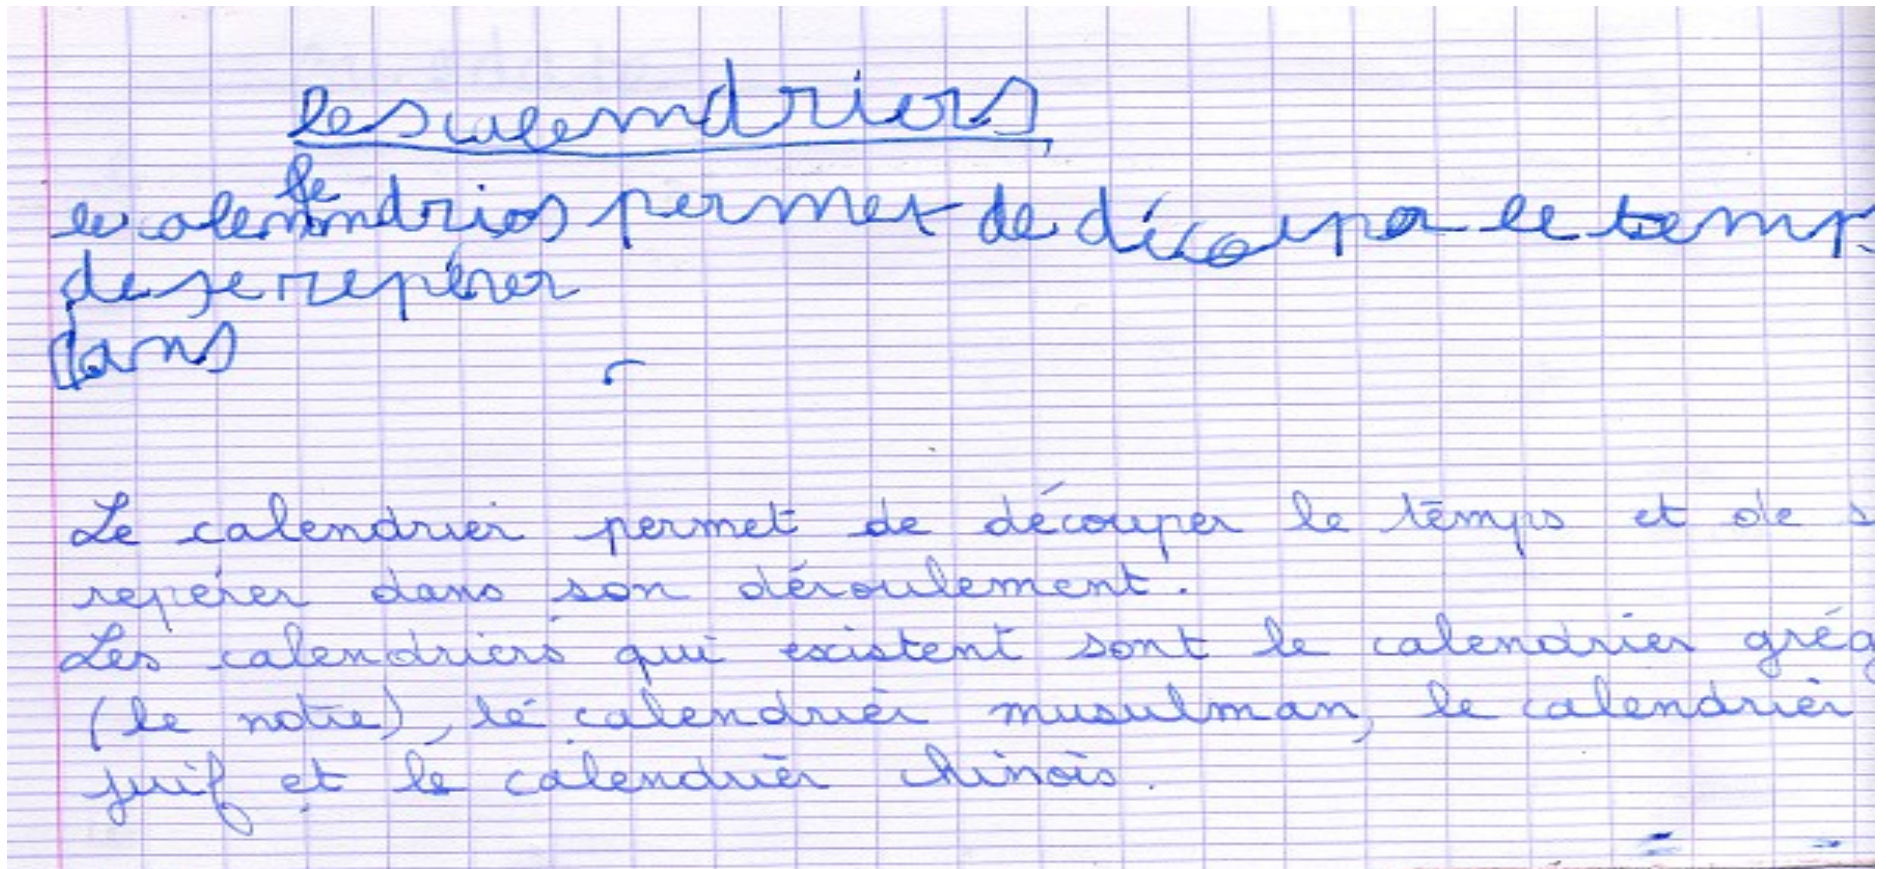 les calemdriers
le
le calemdrios permet de découper le temp
de se repérer
dans
Le calendrier permet de découper le temps et de s
repérer dans son déroulement.
Les calendriers qui existent sont le calendrier grég
(le notre), le calendrier musulman, le calendrier
juif et le calendrier chinois.